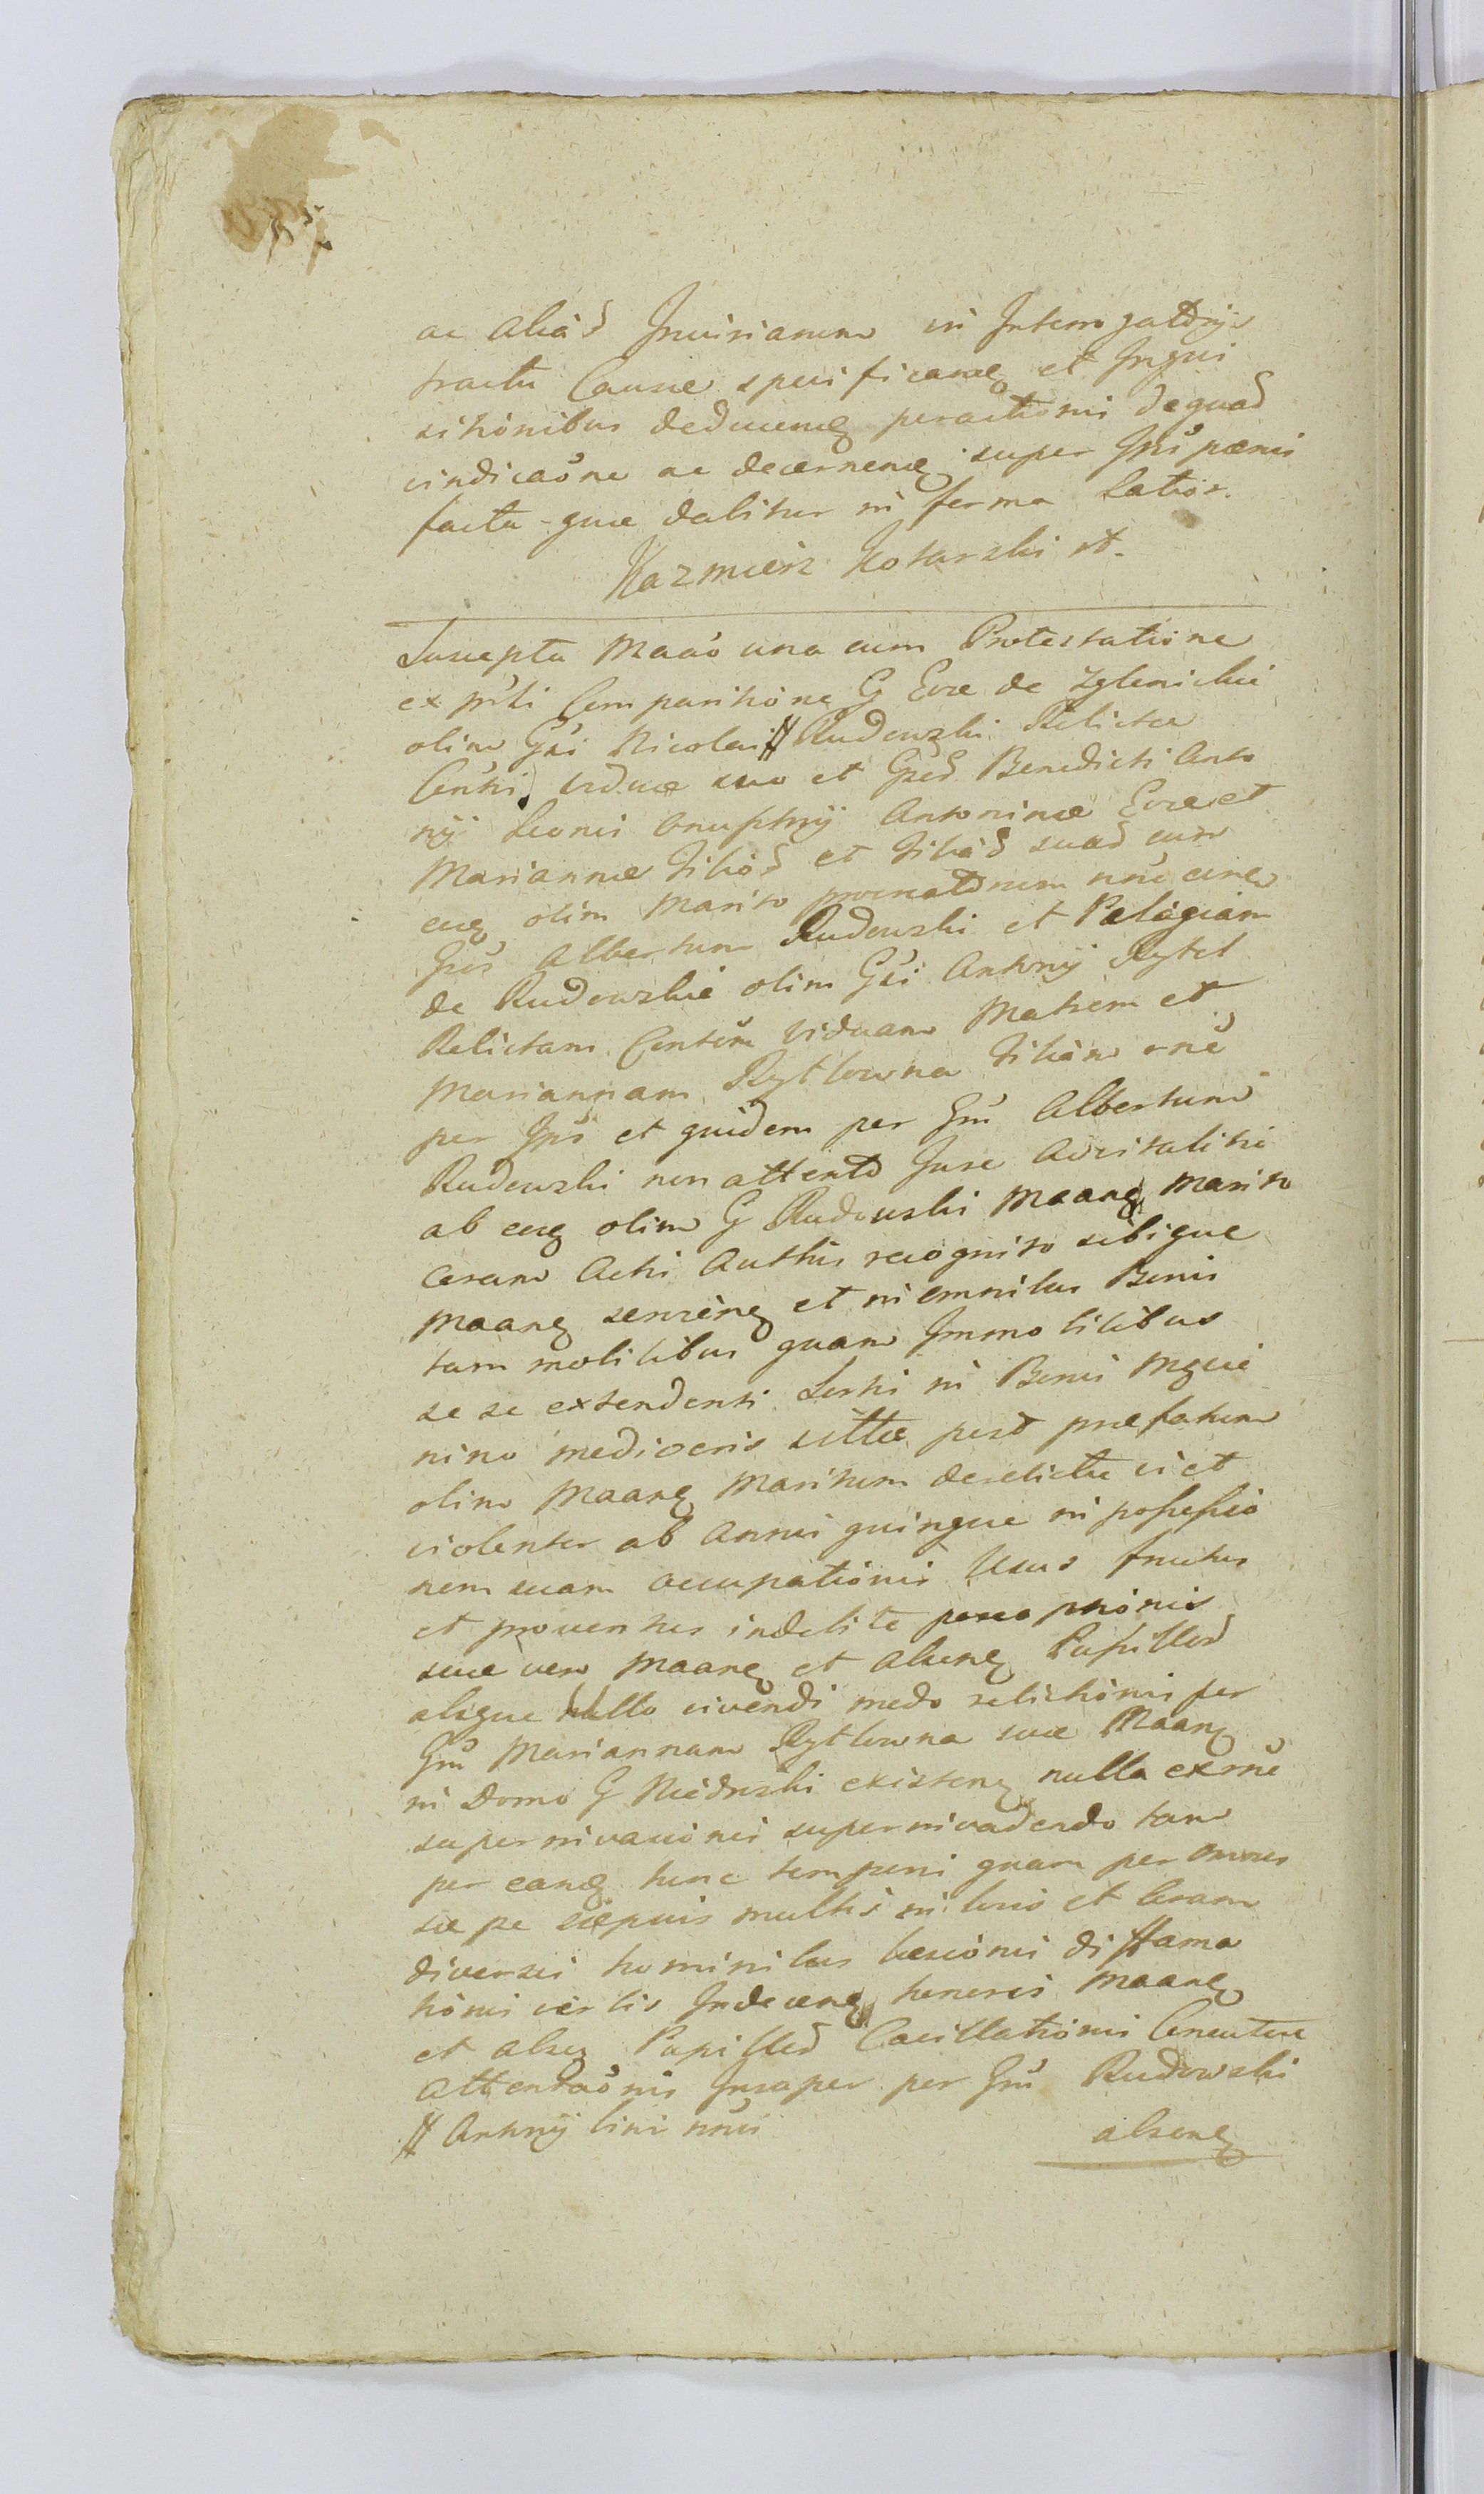 ac aliàs Inuisianem in Interrogatorijs
tractu Causæ specificanę et Inqui
sitionibus deducenę peractionis de quàd
vindicaõne ac decernenę super Ips pænis
facta - quæ dabitur in forma Latior.
Kazmierz Kotarski
Suscepta Maaõ una cum Protestatione
ex pñti Comparitione G Evæ de Zglenickie
olim Gsi Nicolai ╫ Rudowski Relictæ
Centhi Viduæ suo et Gsed Benedicti Anto
nij Leonis Onuphrij Antoninæ Evæ et
Mariannæ filiod et filiad suad cum
eoę olim Marito procreatorum nne circa
Gsos Albertum Rudowski et Pelagiam
de Rudowskie olim Gsi Antonij Rytel
Relictam Centem Viduam Matrem et
Mariannam Rytlowna filiam rne
per Ips et quidem per Gm Albertum
Rudowski non attento Jure Advitalitio
ab eoę olim G Rudowski Maanę Marito
coram Actis Authis recognito sibique
Maanę servienę et in omnibus Bonis
tam mobilibus quam Immobilibus
se se extendenti Sortis in Bonis Mgwie
nino mediocris sittæ post præfatum
olim Maanę Maritum derelictæ vi et
violenter ab Annis quinque in possessio
nem suam occupationis Usus fructus
et proventus indebite perceptionis
suæ vero Maanę et alsenę Pupillos
absque nullo vivendi modo relictionis per
Gm Mariannam Rytlowna suæ Maanę
in Domo G Niedrzki existenę nulla ex rne
supernivasionis supernivadendo tam
per eandę tunc temporis quam per omnes
sæpe sæpius multis in locis et Coram
diversis hominibus læsionis diffama
tionis verbis Indecenę honoris Maanę
et alseę Pupillos Vacillationis Concuture
attentaõnis Insuper per Gm Rudowski
╫ Antonij bini nnis
alsenę